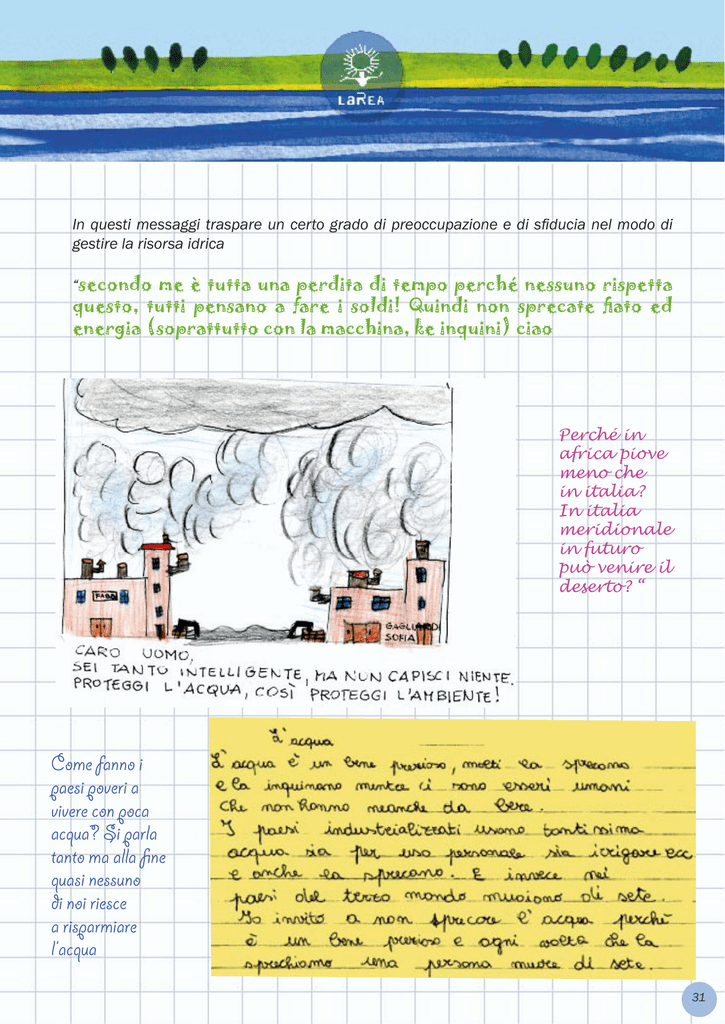 LaREA
In questi messaggi traspare un certo grado di preoccupazione e di sfiducia nel modo di
gestire la risorsa idrica
“secondo me è tutta una perdita di tempo perché nessuno rispetta
questo, tutti pensano a fare i soldi! Quindi non sprecate fiato ed
energia (soprattutto con la macchina, ke inquini) ciao
FABB
GAGLIARDI
SOFIA
CARO UOMO,
SEI TANTO INTELLIGENTE, MA NUN CAPISCI NIENTE.
PROTEGGI L'ACQUA, COSÌ PROTEGGI L'AMBIENTE!
Perché in
africa piove
meno che
in italia?
In italia
meridionale
in futuro
può venire il
deserto? “
Come fanno i
paesi poveri a
vivere con poca
acqua? Si parla
tanto ma alla fine
quasi nessuno
di noi riesce
a risparmiare
l'acqua
L'acqua
L'acqua è un bene prezioso, molti la sprecano
e la inquinano mentre ci sono esseri umani
che non hanno neanche da bere.
I paesi industrializzati usano tantissima
acqua sia per uso personale sia irrigare ecc
e anche la sprecano. E invece nei
paesi del terzo mondo muoiono di sete.
Io invito a non sprecare l'acqua perchè
è un bene prezioso e ogni volta che la
sprechiamo una persona muore di sete.
31